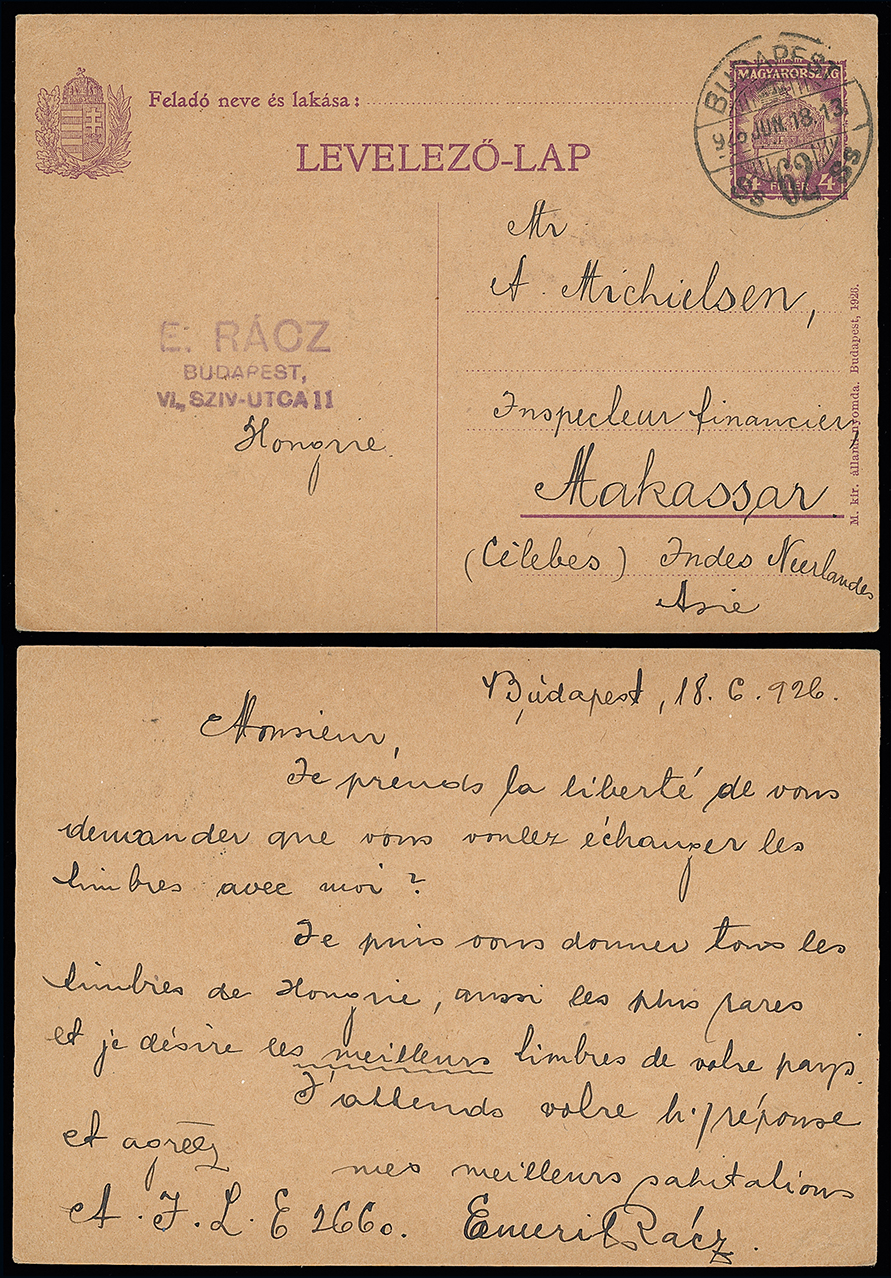 Feladó neve és lakása:
LEVELEZŐ-LAP
BUDAPEST
926 JUN. 18. 13
62
MAGYARORSZÁG
4 FILLÉR 4
Mr
A. Michielsen,
Inspecteur financier,
Makassar
(Célebes) Indes Neerlandes
Asie
E. RÁCZ
BUDAPEST,
VI., SZIV-UTCA 11
Hongrie
M. kir. állami nyomda. Budapest, 1926.
Budapest, 18. 6. 926.
Monsieur,
Je prénds la liberté de vous
demander que vous voulez échanger les
timbres avec moi?
Je puis vous donner tous les
timbres de Hongrie, aussi les plus rares
et je désire les meilleurs timbres de votre pays.
J'attends votre h. réponse
et agréez
mes meilleurs salutations
A. I. L. E 2660. Emeril Rácz.